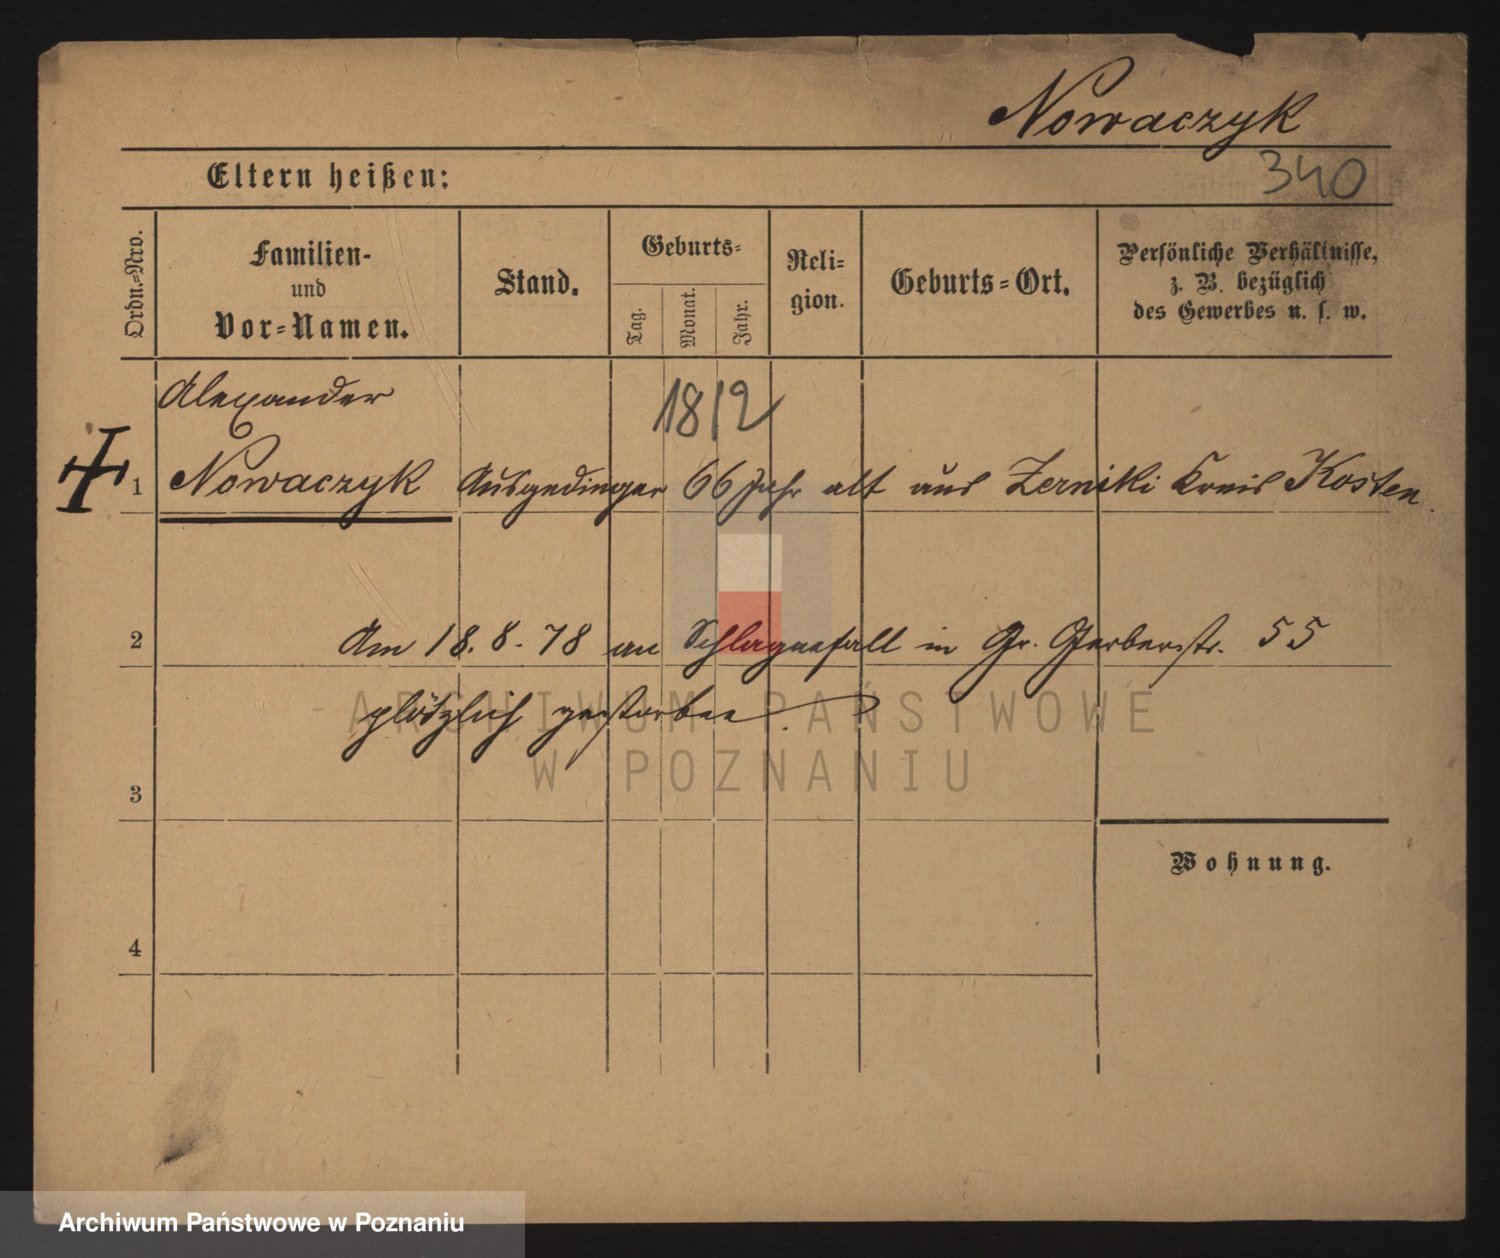 Nowaczyk
Eltern heißen:
340
Ordn.=Nro.
Familien-
und
Vor=Namen.
Stand.
Geburts=
Tag.
Monat.
Jahr.
Reli=
gion.
Geburts=Ort.
Persönliche Verhältnisse,
z. B. bezüglich
des Gewerbes u. s. w.
Alexander
1812
1 Nowaczyk Ausgedinger 66 Jahr alt aus Zerniki Kreis Kosten.
2 Am 18.8.78 am Schlaganfall in Gr. Gerberstr. 55
plötzlich gestorben.
3
Wohnung.
4
ARCHIWUM PAŃSTWOWE
W POZNANIU
Archiwum Państwowe w Poznaniu